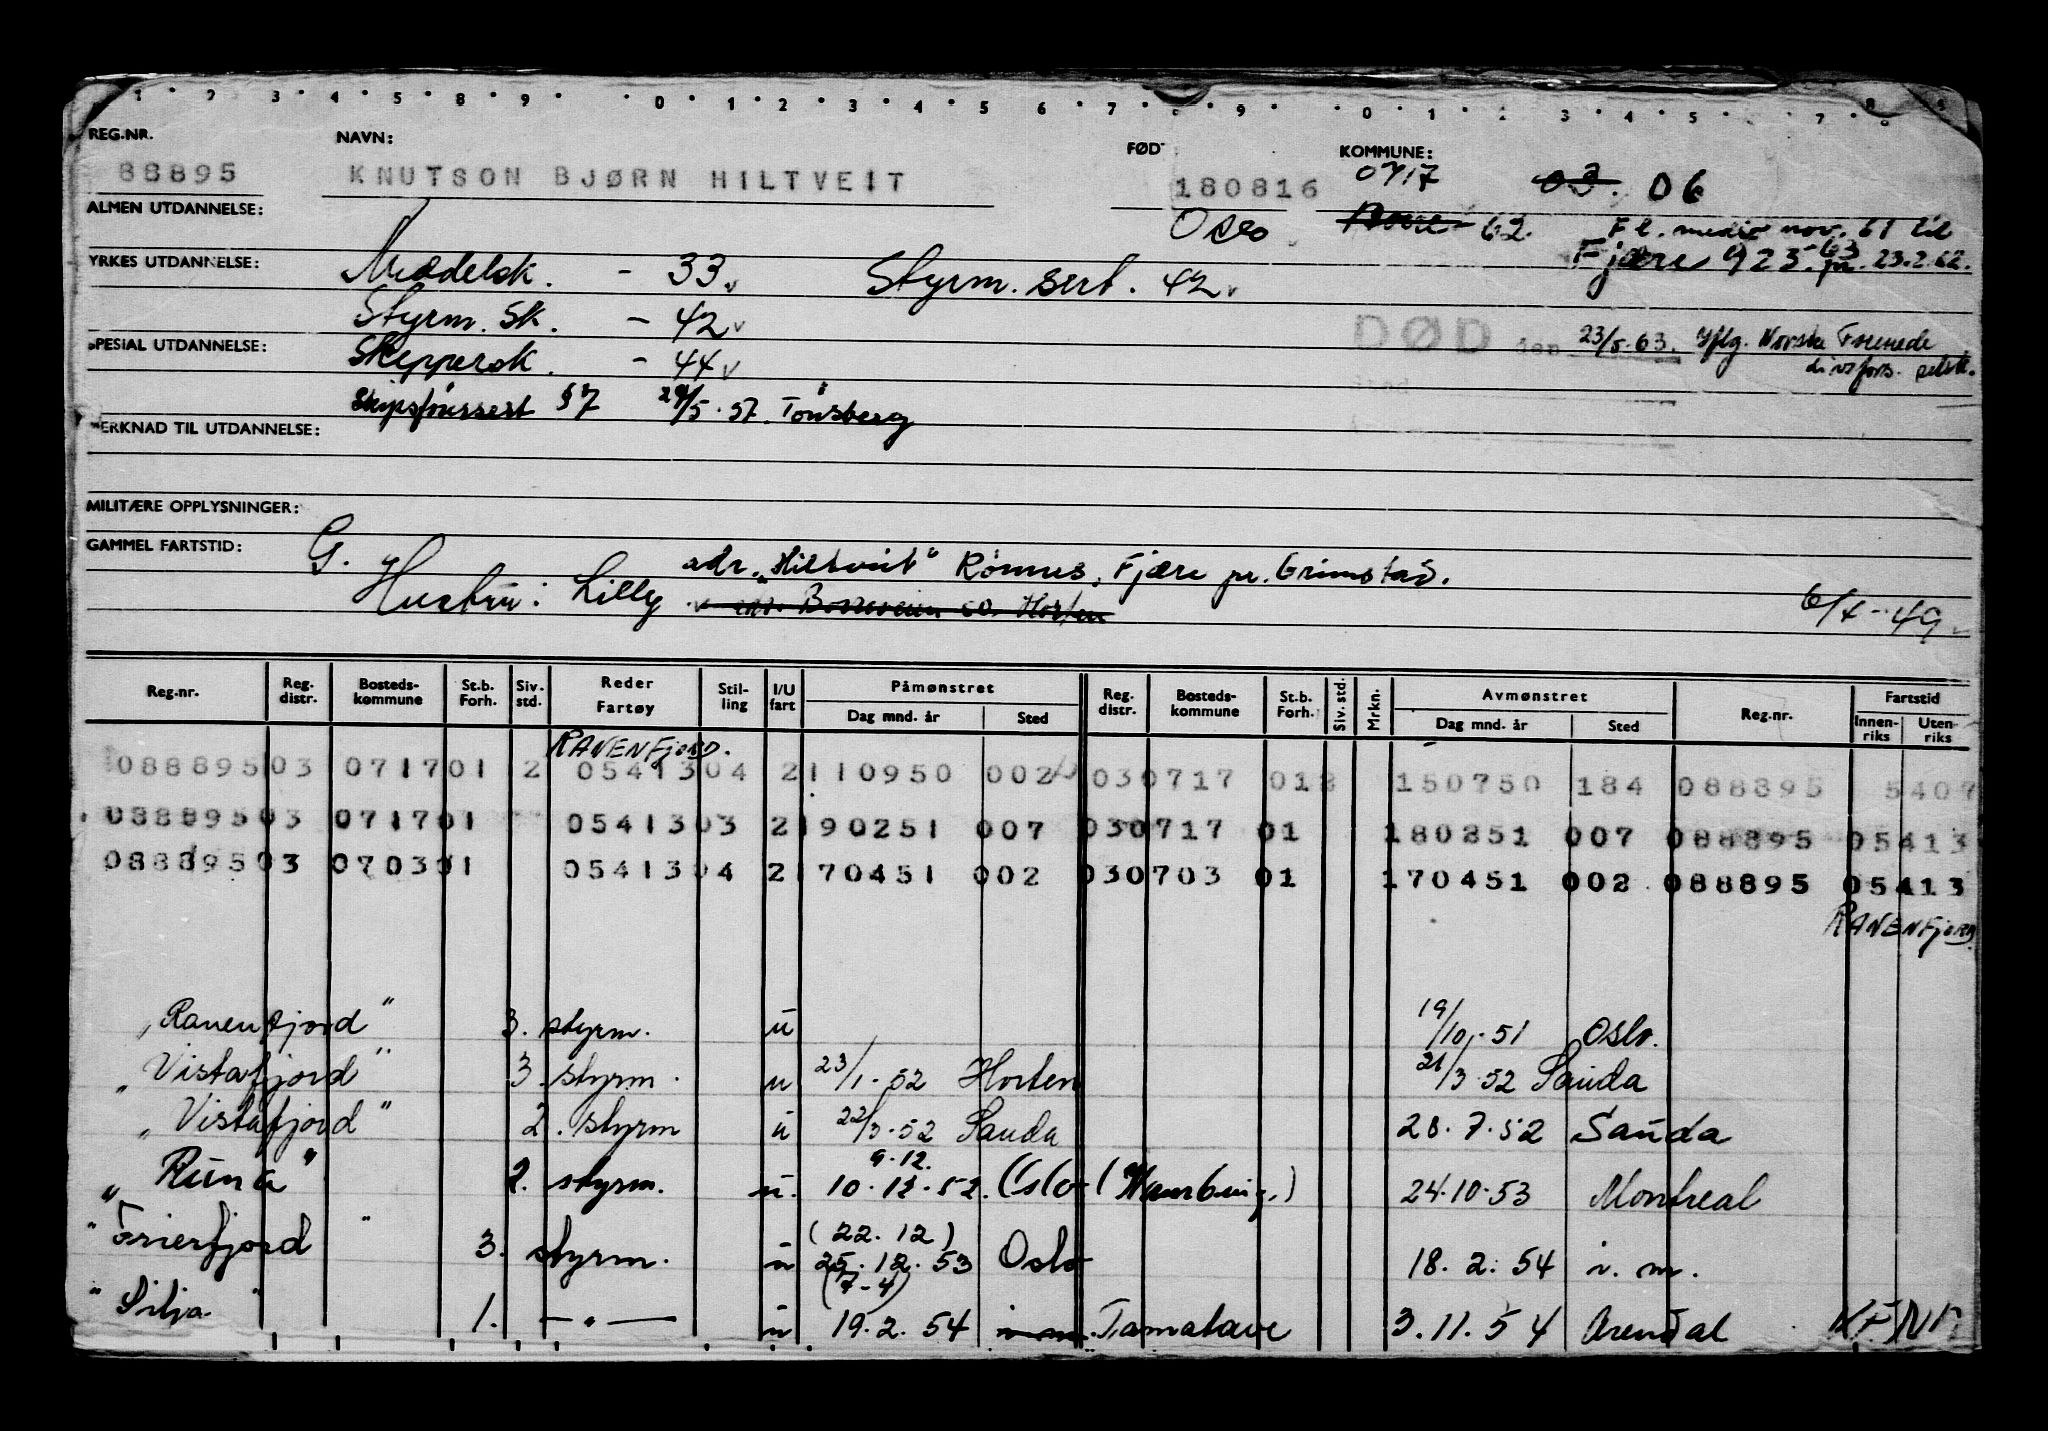 1 2 3 4 5 8 9 0 1 2 3 4 5 6 7 8 9 0 1 2 3 4 5 7 8 8 9
REG.NR. NAVN: FØDT KOMMUNE:
88895 KNUTSON BJØRN HILTVEIT 180816 0717 03. 06
ALMEN UTDANNELSE: Oslo 62. Fl. medio nov. 61 til
YRKES UTDANNELSE: Middelsk. - 33 Styrm. sert. 42 Fjære 923 63 pr. 23.2.62.
Styrm. Sk. - 42
SPESIAL UTDANNELSE: Skippersk. - 44 DØD den 23/5.63. Iflg. Norske Forenede
livsfors. selsk.
Skipsførersert §7 29/5.57. Tønsberg
MERKNAD TIL UTDANNELSE:
MILITÆRE OPPLYSNINGER:
GAMMEL FARTSTID: G. adr. "Hiltveit" Rønnes, Fjære pr. Grimstad.
Hustru: Lilly Horten 6/X-49
Reg.nr. Reg. distr. Bosteds-kommune St.b. Forh. Siv. std. Reder Fartøy Stil-ling I/U fart Påmønstret Dag mnd. år Sted Reg. distr. Bosteds-kommune St.b. Forh. Siv. std. Mrkn. Avmønstret Dag mnd. år Sted Reg.nr. Fartstid Innen-riks Uten-riks
RANENFjORD.
088895 03 0717 01 2 05413 04 2 110950 002 03 0717 01 150750 184 088895 5407
088895 03 0717 01 05413 03 2 190251 007 03 0717 01 180251 007 088895 05413
088895 03 0703 01 05413 04 2 170451 002 03 0703 01 170451 002 088895 05413
RANENFjORD
"Ranenfjord" 3. styrm. u 19/10.51 Oslo.
"Vistafjord" 3. styrm. u 23/1.52 Horten 21/3.52 Sauda
"Vistafjord" 2. styrm u 22/3.52 Sauda 28.7.52 Sauda
9.12.
"Runa" 2. styrm. u. 10.12.52. Oslo (Hamburg.) 24.10.53 Montreal
(22.12)
"Frierfjord" 3. styrm. u 25.12.53 Oslo 18.2.54 i.m.
(7-4)
"Silja" 1. —"— u 19.2.54 i.m. Tamatave 3.11.54 Arendal